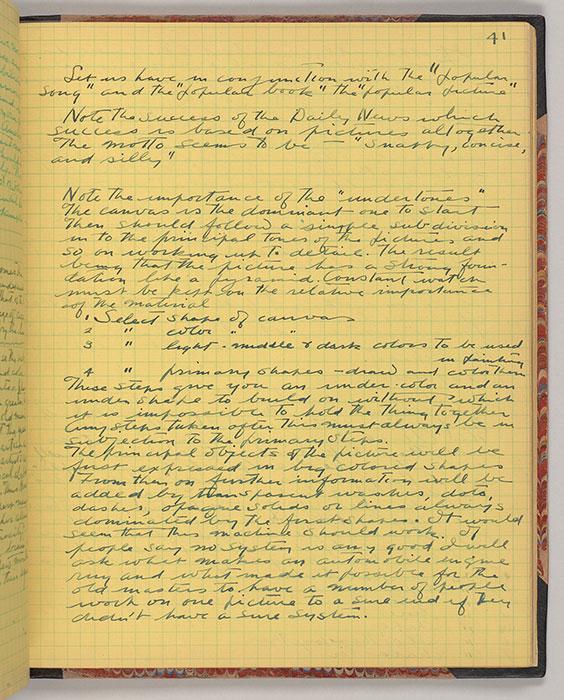 41
Let us have in conjunction with the "popular
song" and the "popular book" the "popular picture"
Note the success of the Daily News which
success is based on pictures altogether.
The motto seems to be - "Snappy, concise,
and silly"
Note the importance of the "undertones"
The canvas is the dominant one to start
Then should follow a simple subdivision
in to the principal tones of the pictures and
so on working up to detail. The result
being that the picture has a strong foun-
dation like a pyramid. Constant watch
must be kept on the relative importance
of the material
1 Select shape of canvas
2 " color " "
3 " light - middle & dark colors to be used
in painting
4 " primary shapes - draw and color them
These steps give you an under-color and an
under shape to build on without which
it is impossible to hold the thing together
Any steps taken after this must always be in
subjection to the primary steps.
The principal objects of the picture will be
first expressed in big colored shapes
From then on further information will be
added by transparent washes, dots,
dashes, opaque solids or lines always
dominated by the first shapes. It would
seem that this machine should work. If
people say no system is any good I will
ask what makes an automobile engine
run and what made it possible for the
old masters to have a number of people
work on one picture to a sure end if they
didn't have a sure system.